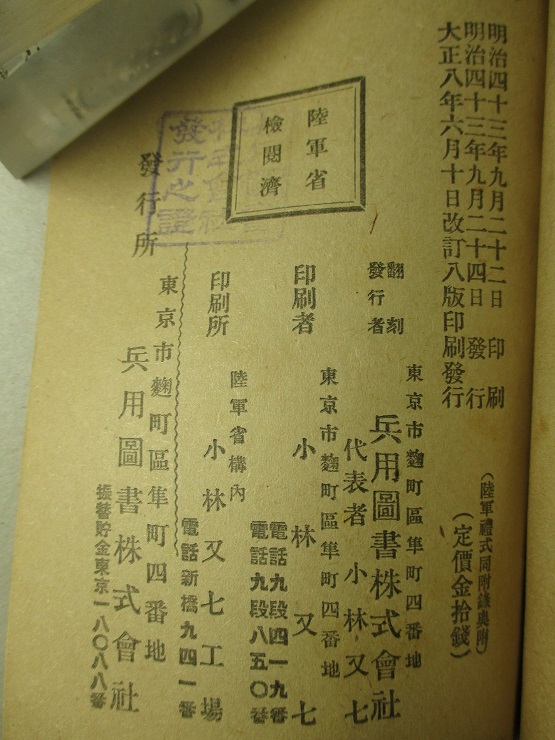 明治四十三年九月二十二日印刷
明治四十三年九月二十四日發行
大正八年六月十日改訂八版印刷發行
(陸軍禮式同附錄奧附)
(定價金拾錢)
陸軍省
檢閱濟
翻刻
發行者
東京市麴町區隼町四番地
兵用圖書株式會社
代表者小林又七
印刷者
東京市麴町區隼町四番地
小林又七
電話九段四一九番
電話九段八五〇番
印刷所
陸軍省構內
小林又七工場
電話新橋九四一番
發行所
東京市麴町區隼町四番地
兵用圖書株式會社
振替貯金東京一八〇八八番
發行之證